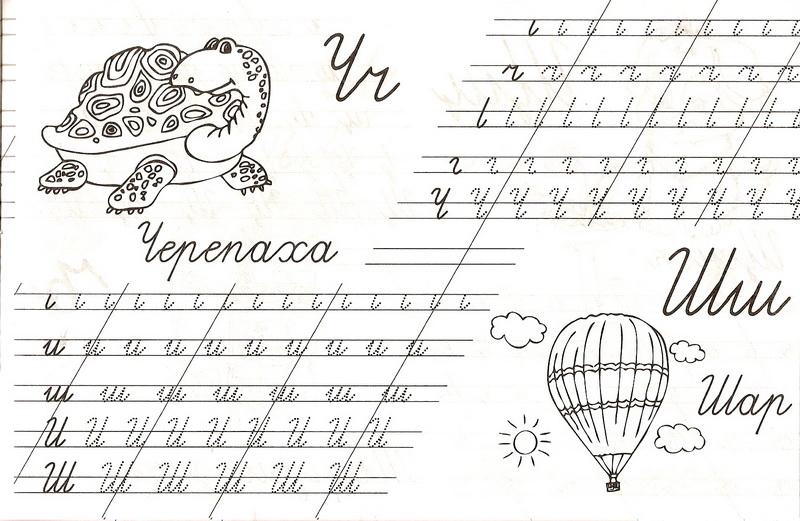 Чч
ч ч ч ч ч ч ч ч
Ч Ч Ч Ч Ч Ч Ч Ч Ч Ч
Черепаха
и и и и и и и и и и
ш ш ш ш ш ш ш
И И И И И И И И И
Ш Ш Ш Ш Ш Ш
Шш
Шар